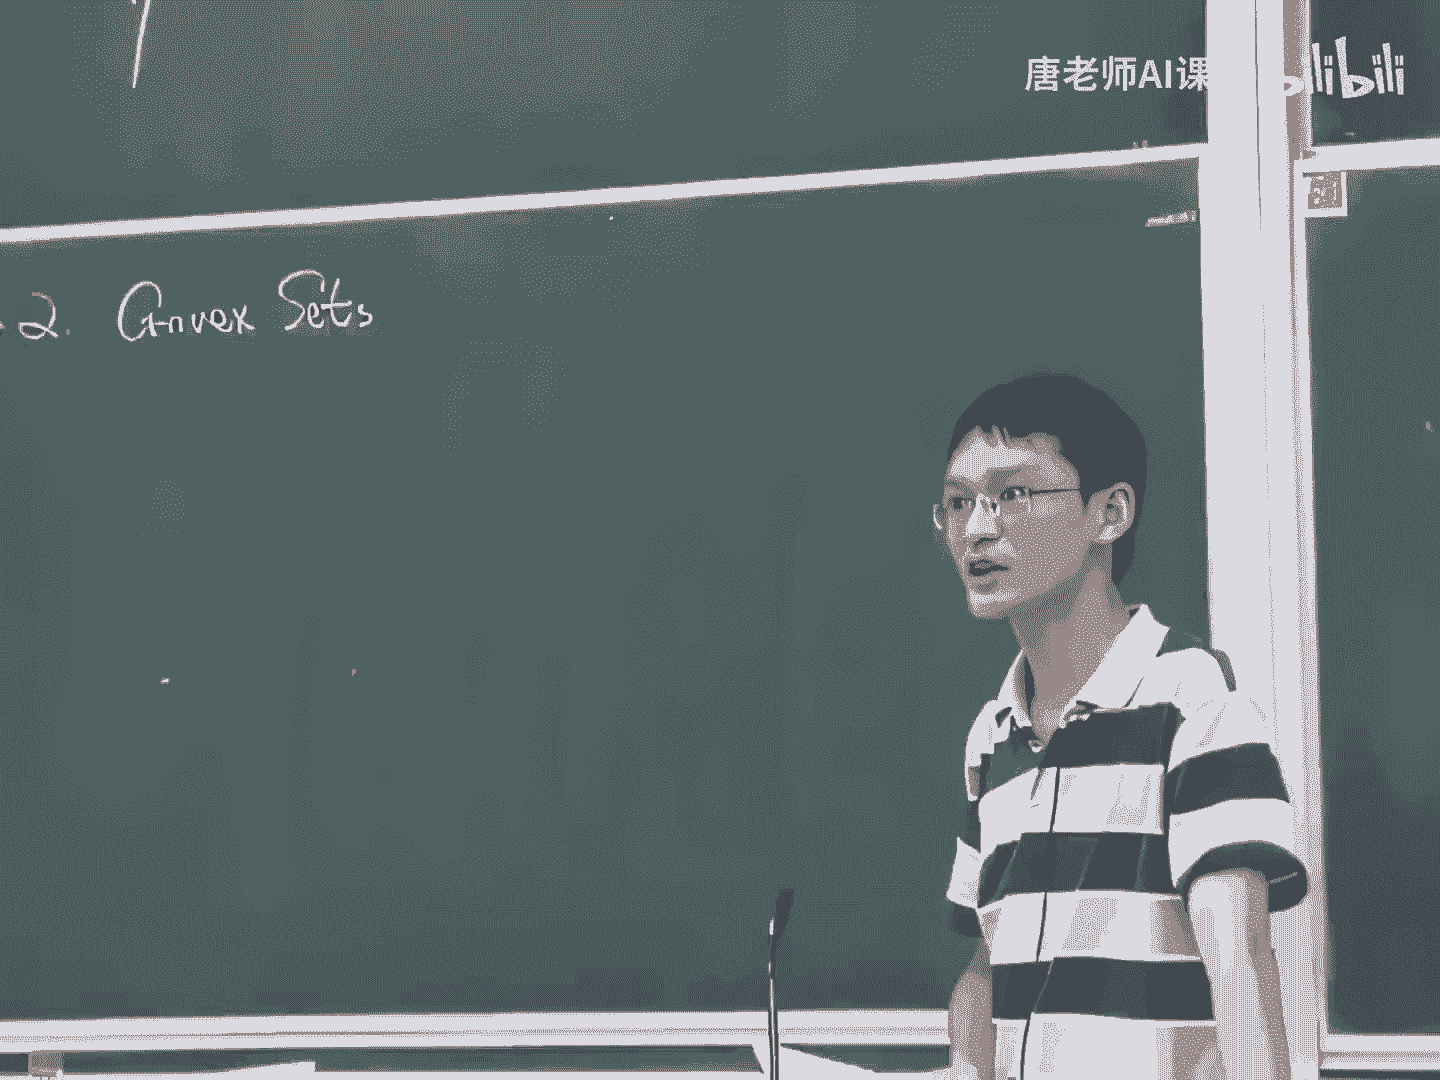 唐老师AI课 bilibili
2. Convex Sets